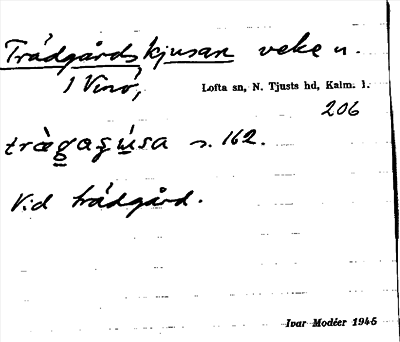 Trädgårdskjusan veke n.
1 Vinö,
Lofta sn, N. Tjusts hd, Kalm. l.
206
trägasúsa s. 162.
Vid trädgård.
Ivar Modéer 1945